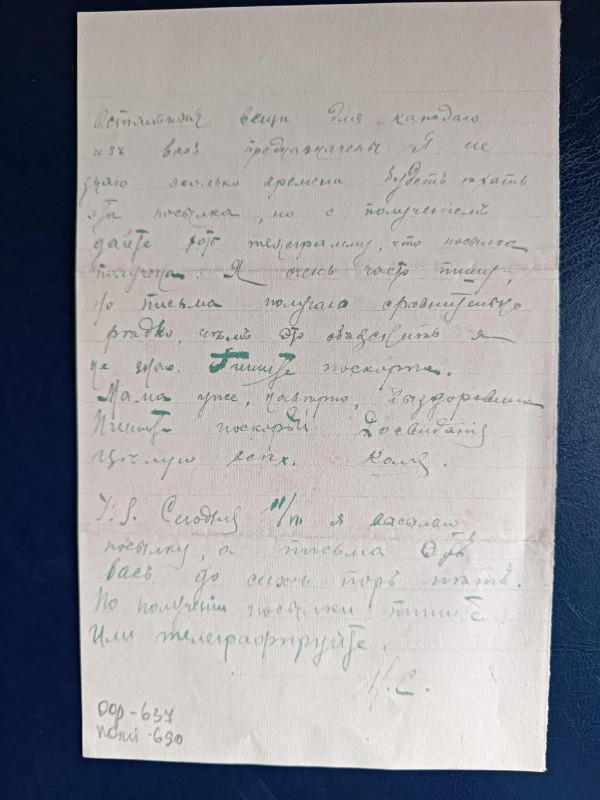 Остальныя вещи для каждаго
изъ васъ предназначены. Я не
знаю сколько времени будетъ ѣхать
эта посылка, но с полученіемъ
дайте хотъ телеграмму, что посылка
получена. Я очень часто пишу,
но письма получаю сравнительно
рѣдко, чѣмъ это объяснить я
не знаю. Пишите поскорѣе.
Мама уже, навѣрно, выздоровѣла
Пишите поскорѣй Досвиданія
Цѣлую всѣхъ. Коля.
P.S. Сегодня я высылаю
посылку, а письма отъ
васъ до сихъ поръ нѣтъ.
По полученіи посылки пишите
Или телеграфируйте.
Н. С.
ООф-637
покп-690